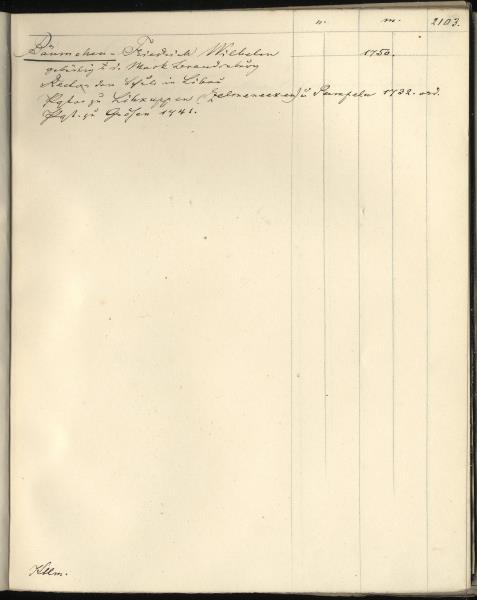 n. m. 2103.
Bäumchen - Friedrich Wilhelm 1750.
gebürtig a. d. Mark Brandenburg
Rector der Schule in Libau
Pastor zu Libruppen (Zelmeneeken) u Pampeln 1732. ord.
Past. zu Grösen 1741.
Kllm.